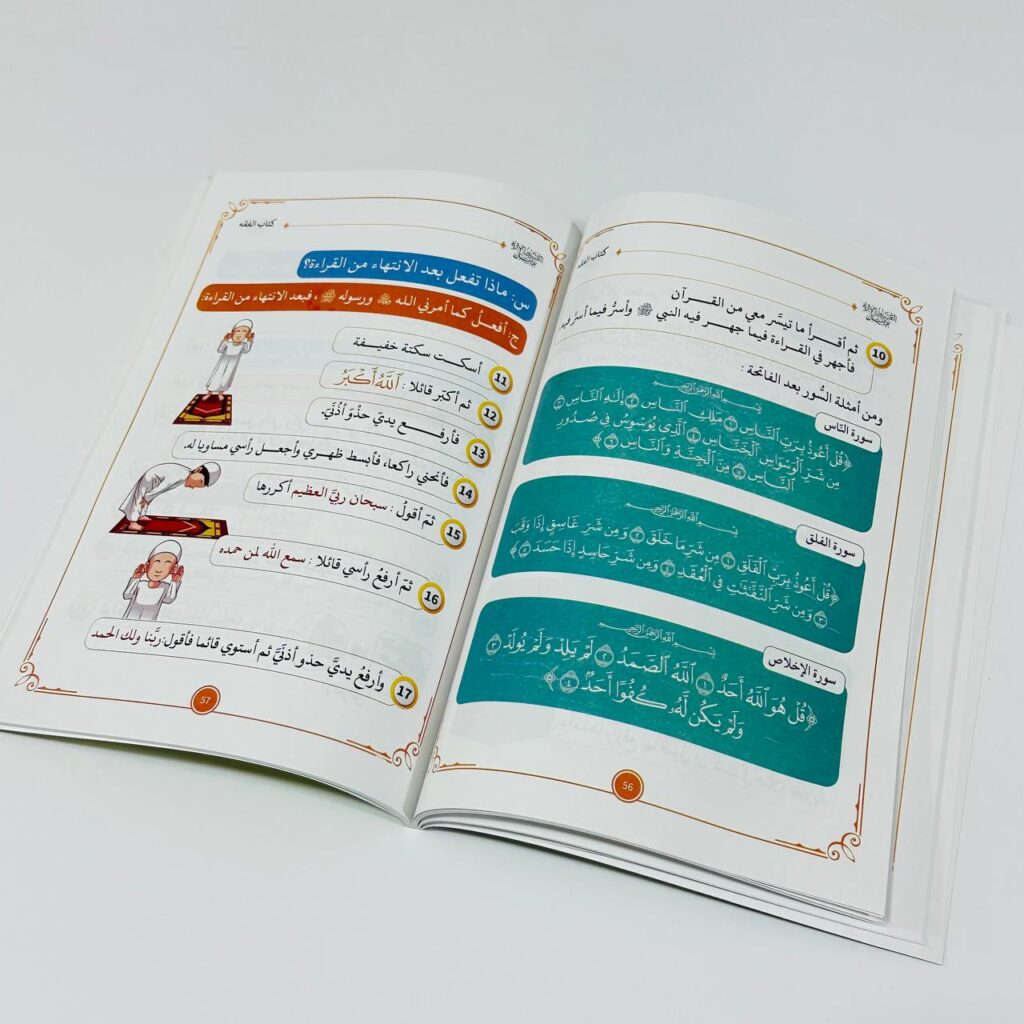 كتاب الفقه
10
ثم أقرأ ما تيسَّر معي من القرآن
فأجهر في القراءة فيما جهر فيه النبي ﷺ وأسرُّ فيما أسرَّ فيه
ومن أمثلة السُّور بعد الفاتحة :
سورة النّاس
بِسْمِ ٱللَّهِ ٱلرَّحْمَٰنِ ٱلرَّحِيمِ
﴿قُلْ أَعُوذُ بِرَبِّ ٱلنَّاسِ ١ مَلِكِ ٱلنَّاسِ ٢ إِلَٰهِ ٱلنَّاسِ ٣
مِن شَرِّ ٱلْوَسْوَاسِ ٱلْخَنَّاسِ ٤ ٱلَّذِى يُوَسْوِسُ فِى صُدُورِ
ٱلنَّاسِ ٥ مِنَ ٱلْجِنَّةِ وَٱلنَّاسِ ٦﴾
سورة الفلق
بِسْمِ ٱللَّهِ ٱلرَّحْمَٰنِ ٱلرَّحِيمِ
﴿قُلْ أَعُوذُ بِرَبِّ ٱلْفَلَقِ ١ مِن شَرِّ مَا خَلَقَ ٢ وَمِن شَرِّ غَاسِقٍ إِذَا وَقَبَ
٣ وَمِن شَرِّ ٱلنَّفَّٰثَٰتِ فِى ٱلْعُقَدِ ٤ وَمِن شَرِّ حَاسِدٍ إِذَا حَسَدَ ٥﴾
سورة الإخلاص
بِسْمِ ٱللَّهِ ٱلرَّحْمَٰنِ ٱلرَّحِيمِ
﴿قُلْ هُوَ ٱللَّهُ أَحَدٌ ١ ٱللَّهُ ٱلصَّمَدُ ٢ لَمْ يَلِدْ وَلَمْ يُولَدْ ٣
وَلَمْ يَكُن لَّهُۥ كُفُوًا أَحَدٌۢ ٤﴾
56
كتاب الفقه
س: ماذا تفعل بعد الانتهاء من القراءة؟
ج: أفعلُ كما أمرني الله ﷻ ورسوله ﷺ، فبعد الانتهاء من القراءة:
11 أسكت سكتة خفيفة
12 ثم أكبّر قائلا : ٱللَّهُ أَكْبَرُ
13 فأرفع يديَّ حذْوَ أذُنَيَّ.
14 فأنحني راكعا، فأبسط ظهري وأجعل رأسي مساويا له.
15 ثمّ أقولُ : سبحان ربيَّ العظيم أكررها
16 ثمّ أرفعُ رأسي قائلا : سمع الله لمن حمده
17 وأرفعُ يديَّ حذو أذنَيَّ ثم أستوي قائما فأقول: ربَّنا ولك الحمد
57